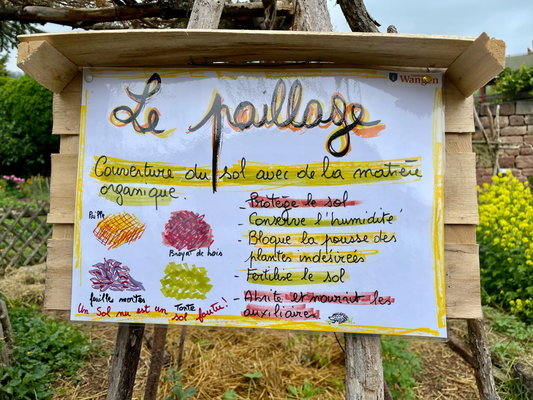 Wangen
Le paillage
Couverture du sol avec de la matière
organique.
- Protège le sol
- Conserve l'humidité
- Bloque la pousse des
plantes indésirées
- Fertilise le sol
- Abrite et nourrit les
auxiliaires
Paille
Broyat de bois
feuilles mortes
Tonte
Un Sol nu est un sol foutu!